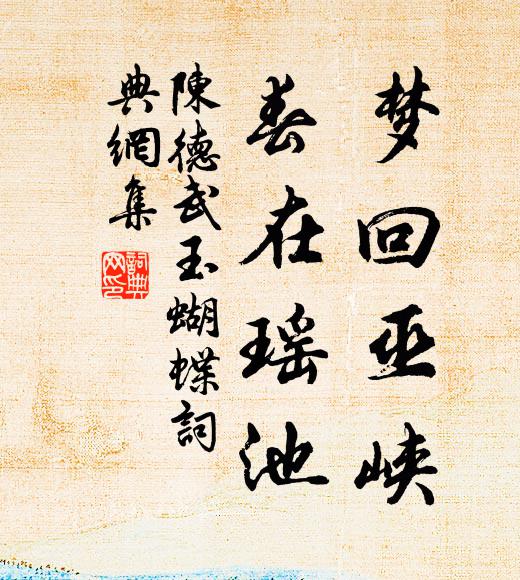 梦回巫峡
春在瑶池
陳德武玉蝴蝶詞
典網集
詞典网印